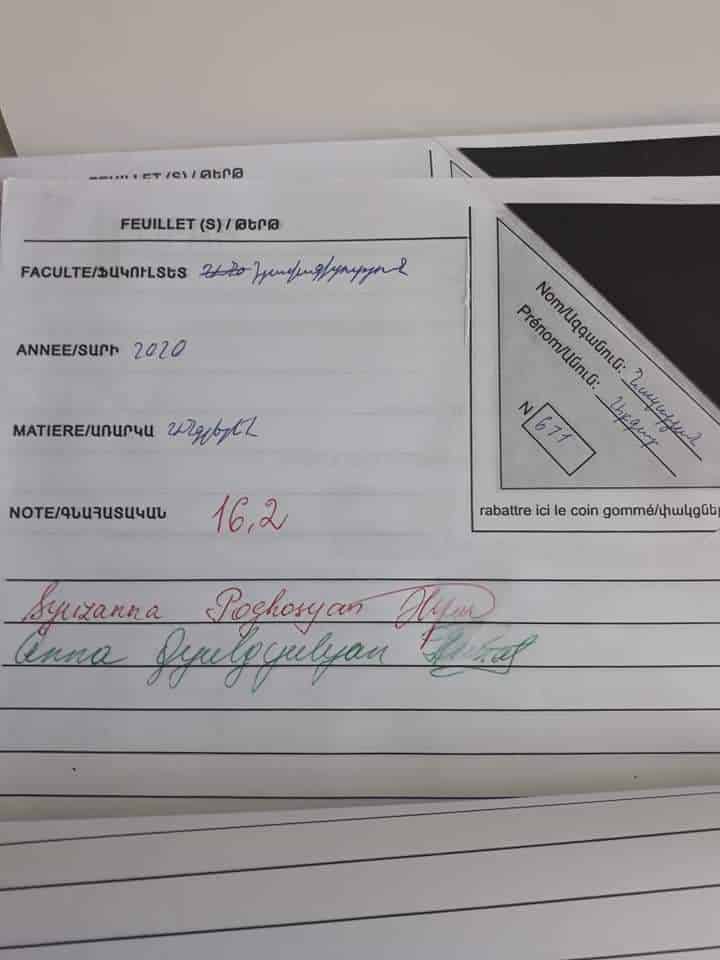 FEUILLET (S) / ԹԵՐԹ
FEUILLET (S) / ԹԵՐԹ
FACULTE/ՖԱԿՈՒԼՏԵՏ
ANNEE/ՏԱՐԻ 2020
MATIERE/ԱՌԱՐԿԱ Անգլերեն
NOTE/ԳՆԱՀԱՏԱԿԱՆ 16,2
Nom/Ազգանուն:
Prénom/Անուն:
N 671
rabattre ici le coin gommé/փակցնել
Syuzanna Poghosyan
Anna Gyulgyulyan